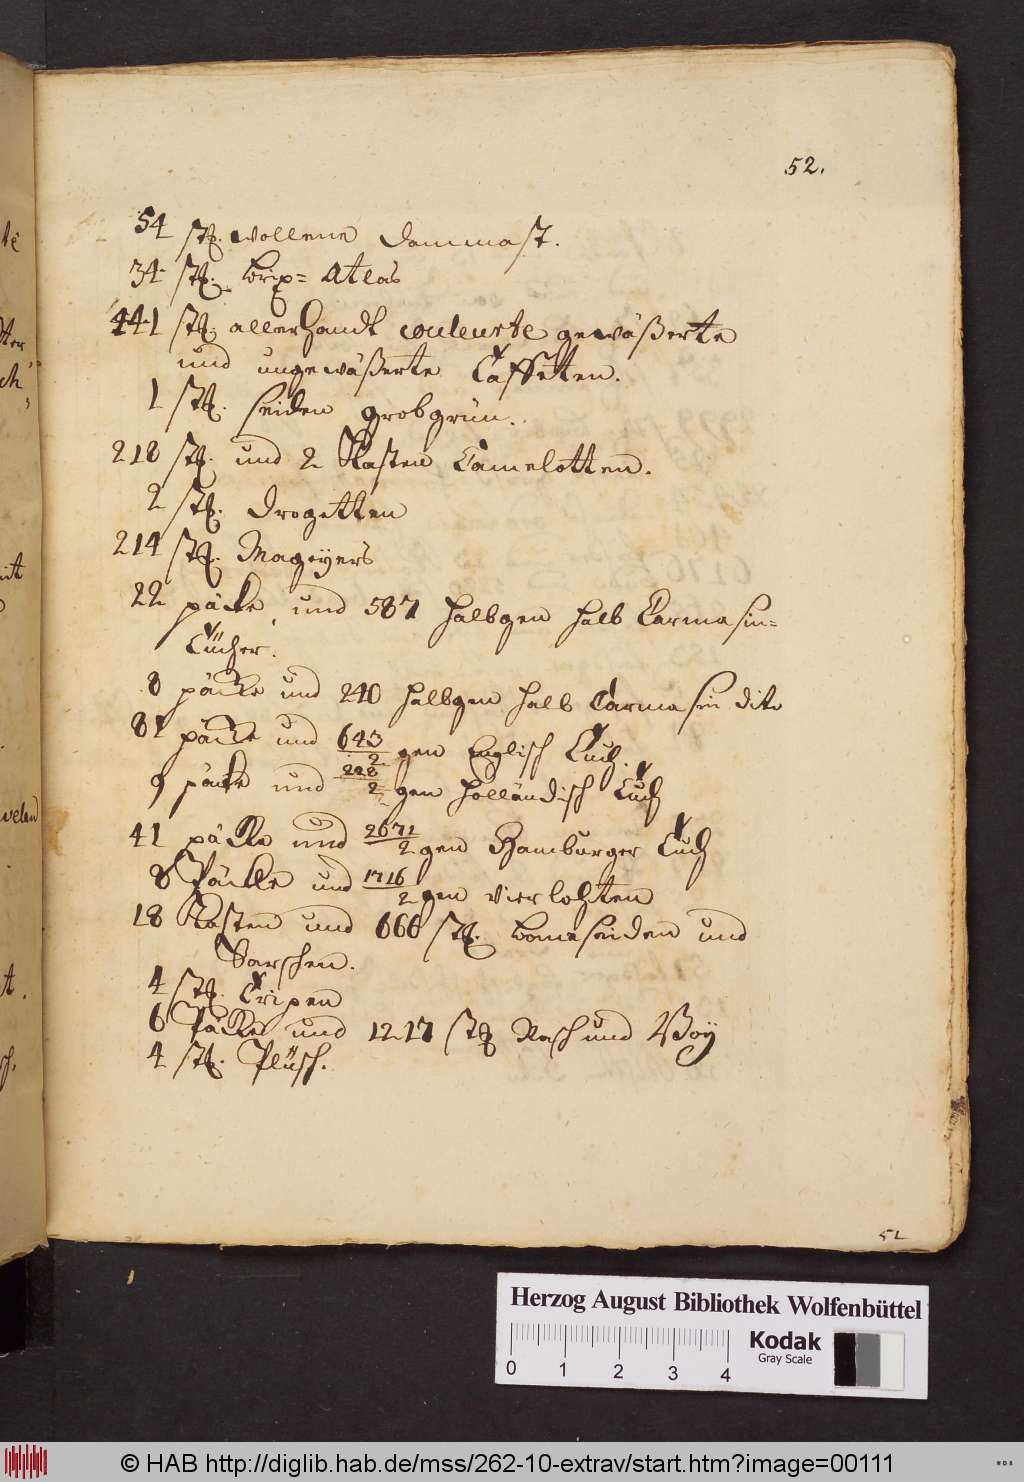 52.
54 stk. wollene Dammast.
34 stk. brix= Atlas
441 stk. allerhandt couleurte gewäßerte
und ungewäßerte Taffeten.
1 stk. seiden grobgrün.
218 stk. und 2 Kasten Camelotten.
2 stk. Drogetten
214 stk. Mageyers
22 päcke und 587 halbgen halb Carmasin=
Tücher.
8 päcke und 240 halbgen halb Carmasin dito
81 päcke und 643/2 gen Englisch Tuch.
9 päcke und 228/2 gen holländisch Tuch
41 päcke und 2671/2 gen Hamburger Tuch
8 Päcke und 1716/2 gen vier lohten
18 Kasten und 666 stk. bomeseiden und
Sarschen.
4 stk. Cripen
6 Päcke und 1217 stk Rasch und Boÿ
4 stk. Plüsch.
52
Herzog August Bibliothek Wolfenbüttel
Kodak
Gray Scale
0 1 2 3 4
© HAB http://diglib.hab.de/mss/262-10-extrav/start.htm?image=00111